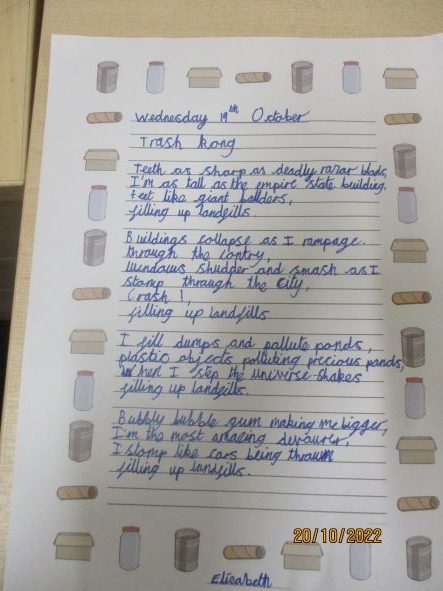 Wednesday 19th October
Trash kong
Teeth as sharp as deadly razar blads,
I'm as tall as the empire state building.
feet like giant bolders,
filling up landfills.
Buildings collapse as I rampage.
through the contry,
windows shudder and smash as I
stamp through the city,
Crash!,
filling up landfills
I fill dumps and pollute ponds,
plastic objects polluting precious ponds,
When I step the universe shakes
filling up landfills.
Bubbly bubble gum making me bigger,
I'm the most amazing devourer,
I stomp like cars being thrown
filling up landfills.
20/10/2022
Elizabeth